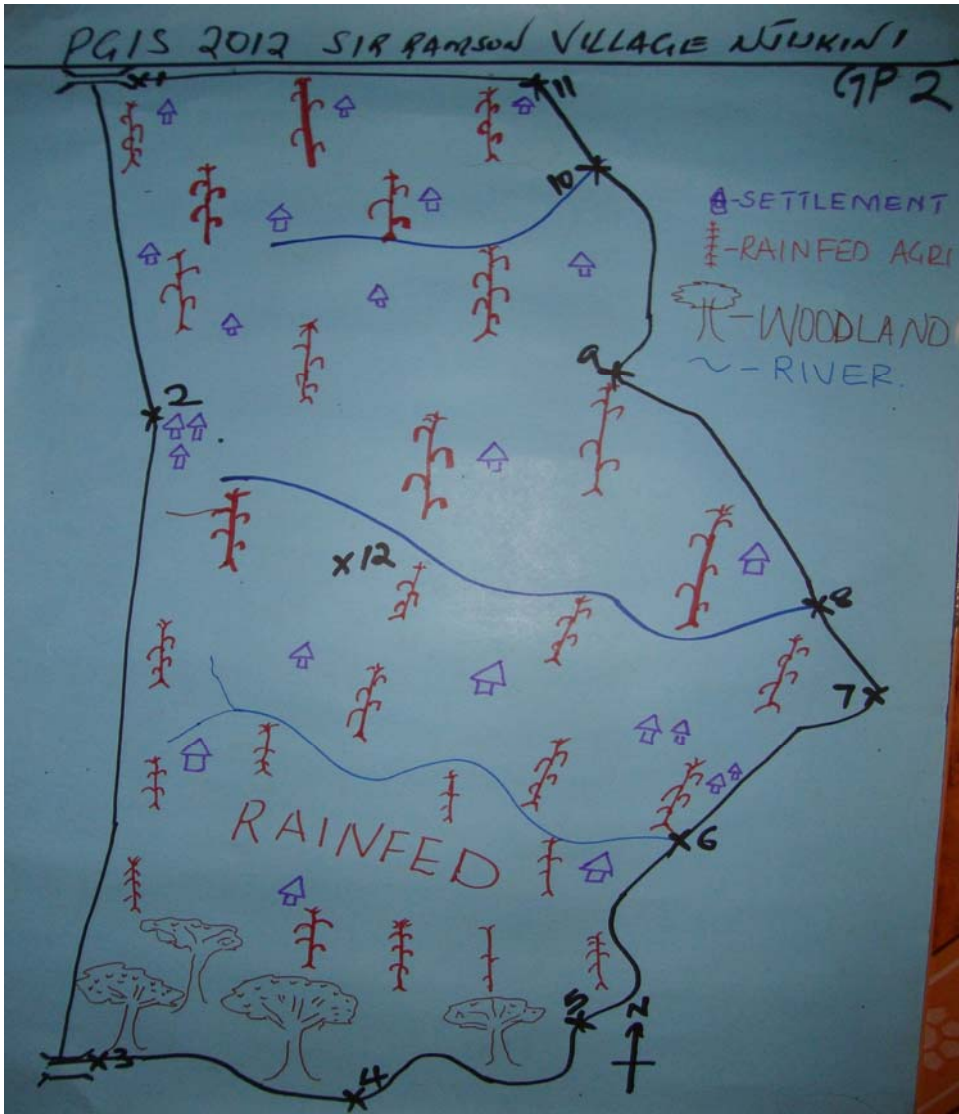 PGIS 2012 SIR RAMSON VILLAGE NJUKINI
GP 2
1
11
10
SETTLEMENT
RAINFED AGRI
WOODLAND
RIVER.
9
2
12
8
7
RAINFED
6
5
N
3
4